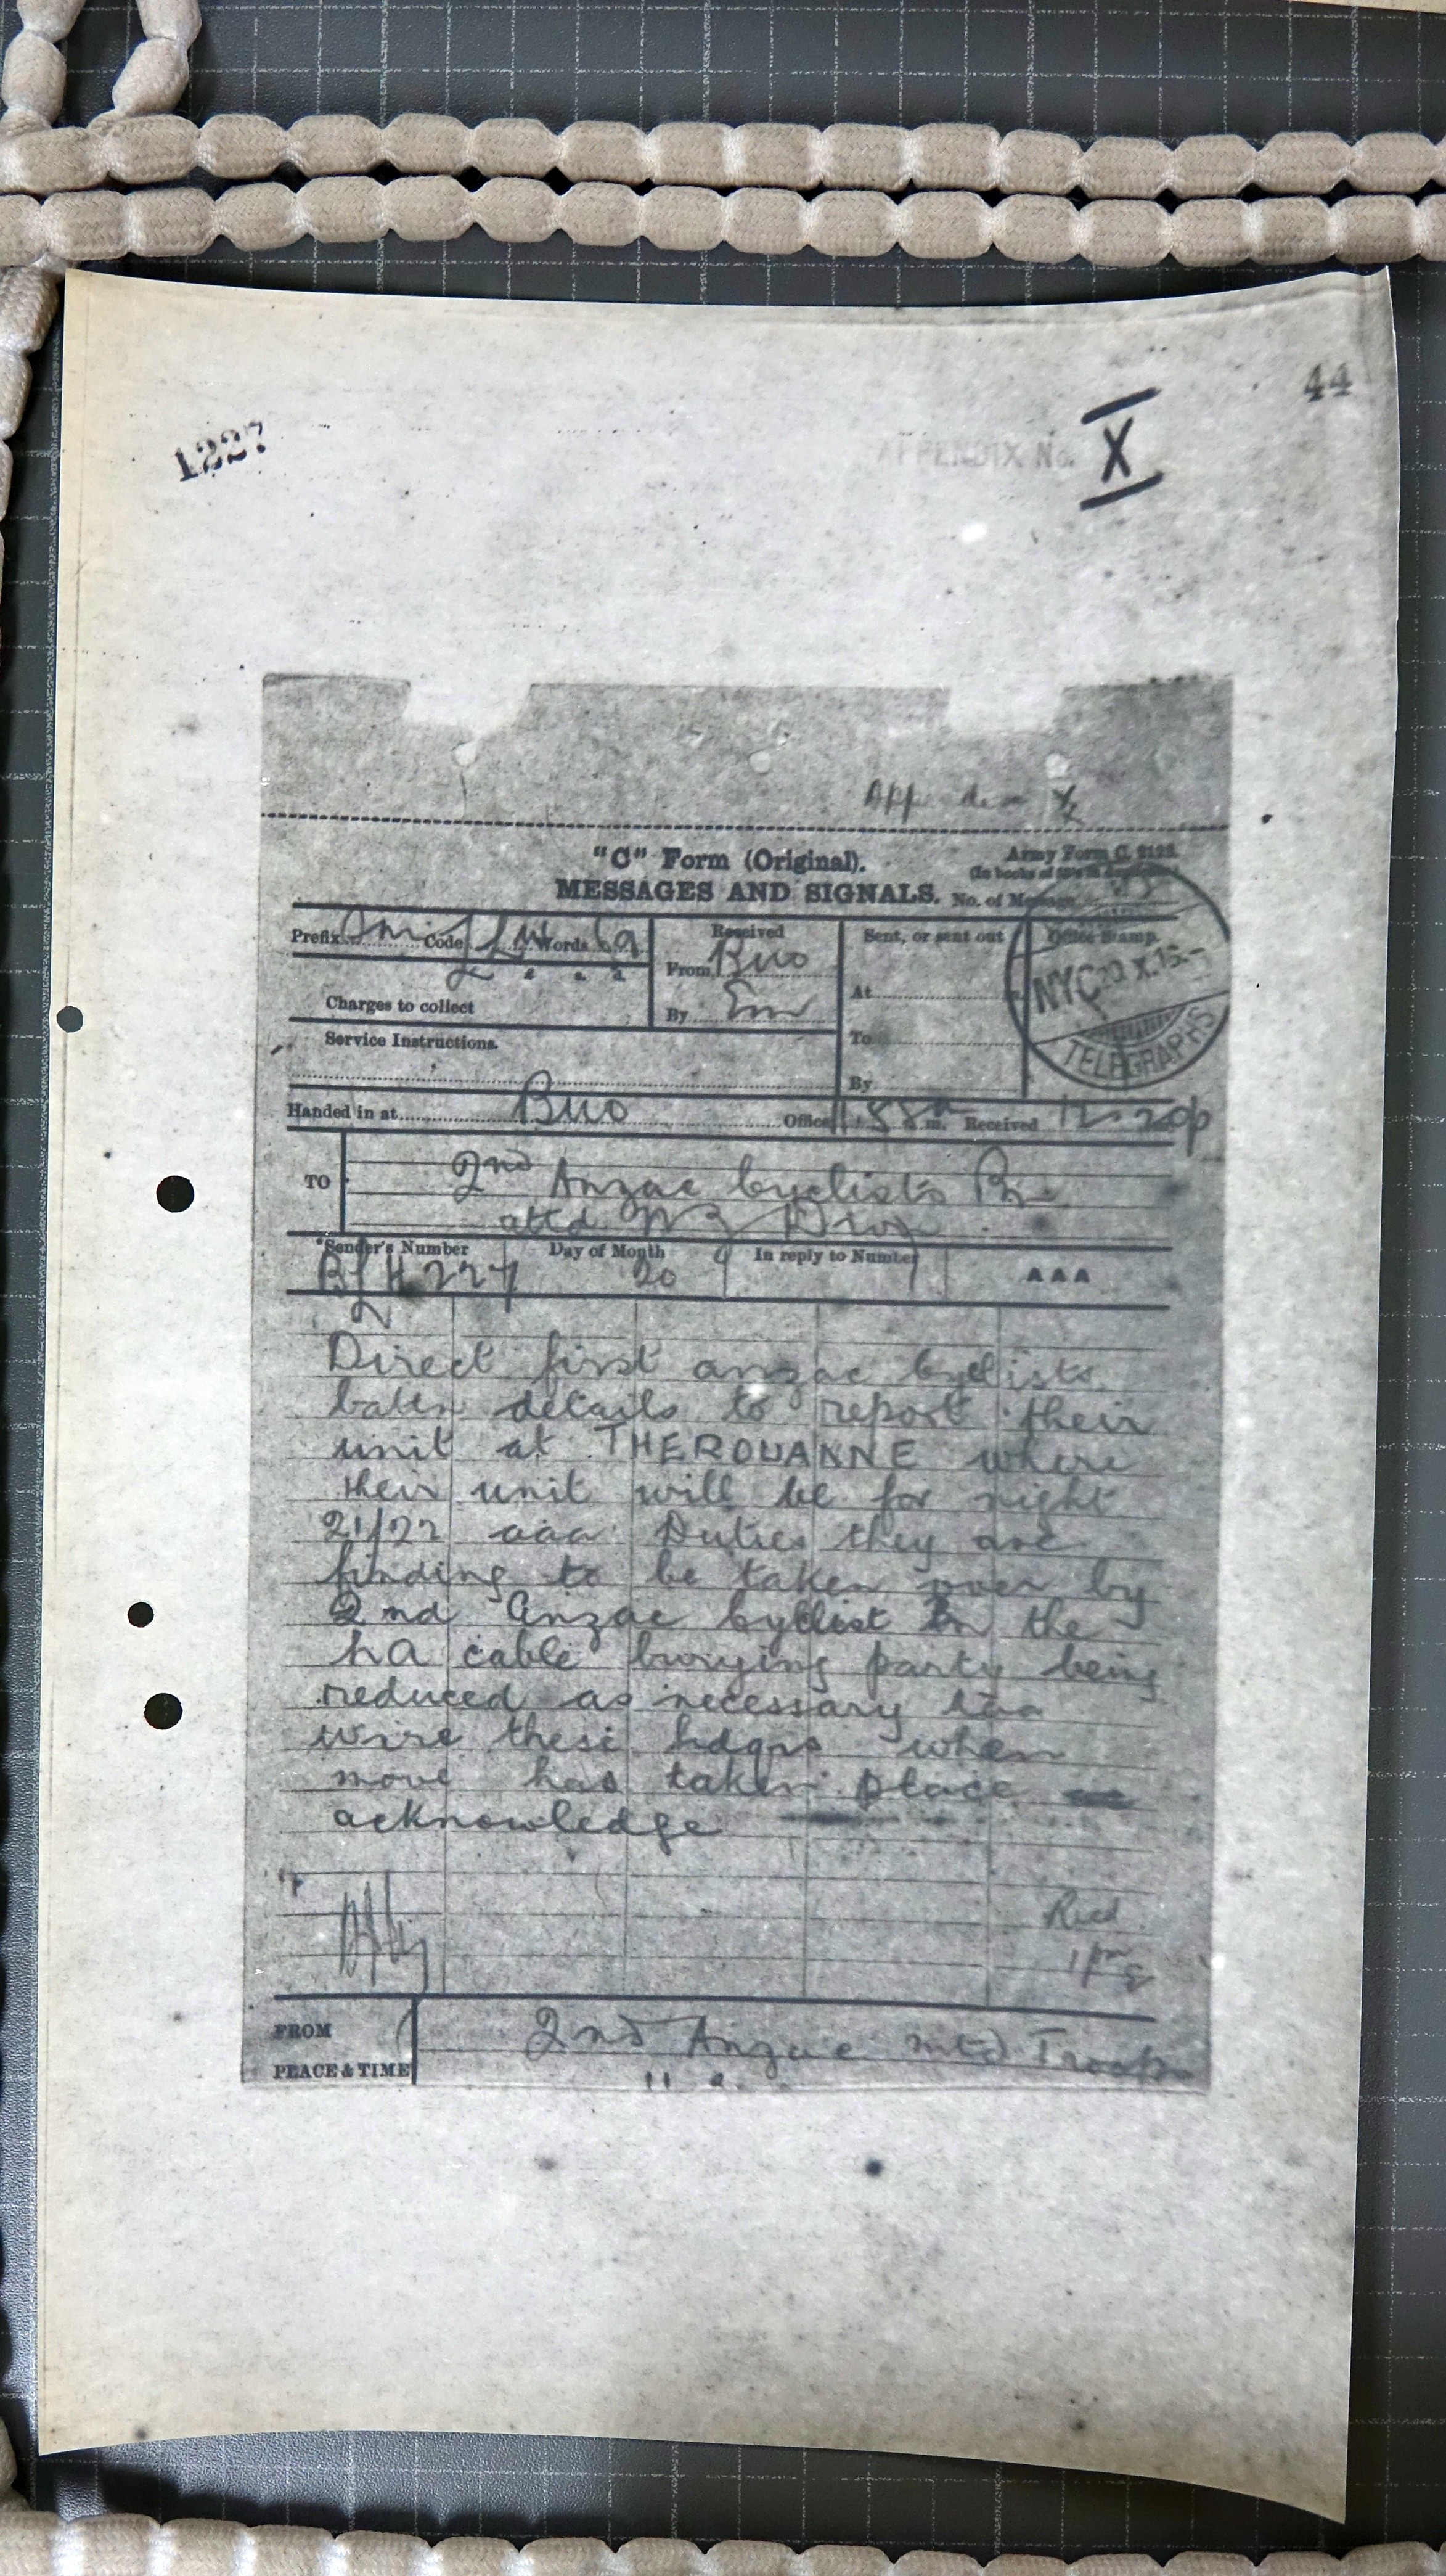 44
1227
APPENDIX No. X
Appendix X
"C" Form (Original).
Army Form C. 2123.
MESSAGES AND SIGNALS.
No. of Message
Prefix Code Words 69
Received
From Buo
By Em
Sent, or sent out
At
To
By
Office Stamp.
NYC 20.X.15
TELEGRAPHS
£ s. d.
Charges to collect
Service Instructions.
Handed in at Buo Office m. Received 12.20p
TO
2nd Anzac Cyclists Bn
attd NZ Divn
*Sender's Number
Day of Month
In reply to Number
AAA
H227
20
Direct first anzac cyclists
battn details to report their
unit at THEROUANNE where
their unit will be for night
21/22 aaa Duties they are
finding to be taken over by
2nd Anzac cyclist Bn the
ha cable burying party being
reduced as necessary aaa
wire these hdqrs when
move has taken place
acknowledge
Recd
1pm
FROM
PLACE & TIME
2nd Anzac mtd Troops